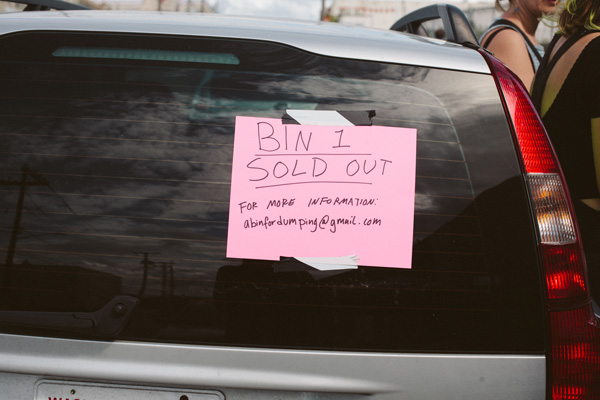 BIN 1
SOLD OUT
FOR MORE INFORMATION:
abinfordumping@gmail.com